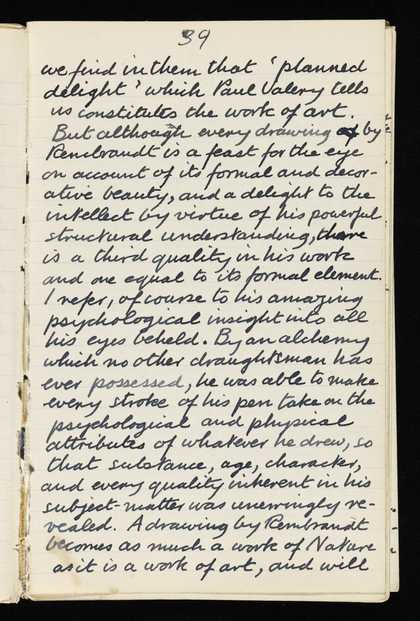 39
we find in them that 'planned
delight' which Paul Valery tells
us constitutes the work of art.
But although every drawing by
Rembrandt is a feast for the eye
on account of its formal and decor-
ative beauty, and a delight to the
intellect by virtue of his powerful
structural understanding, there
is a third quality in his work
and one equal to its formal element.
I refer, of course to his amazing
psychological insight into all
his eyes beheld. By an alchemy
which no other draughtsman has
ever possessed, he was able to make
every stroke of his pen take on the
psychological and physical
attributes of whatever he drew, so
that substance, age, character,
and every quality inherent in his
subject-matter was unerringly re-
vealed. A drawing by Rembrandt
becomes as much a work of Nature
as it is a work of art, and will